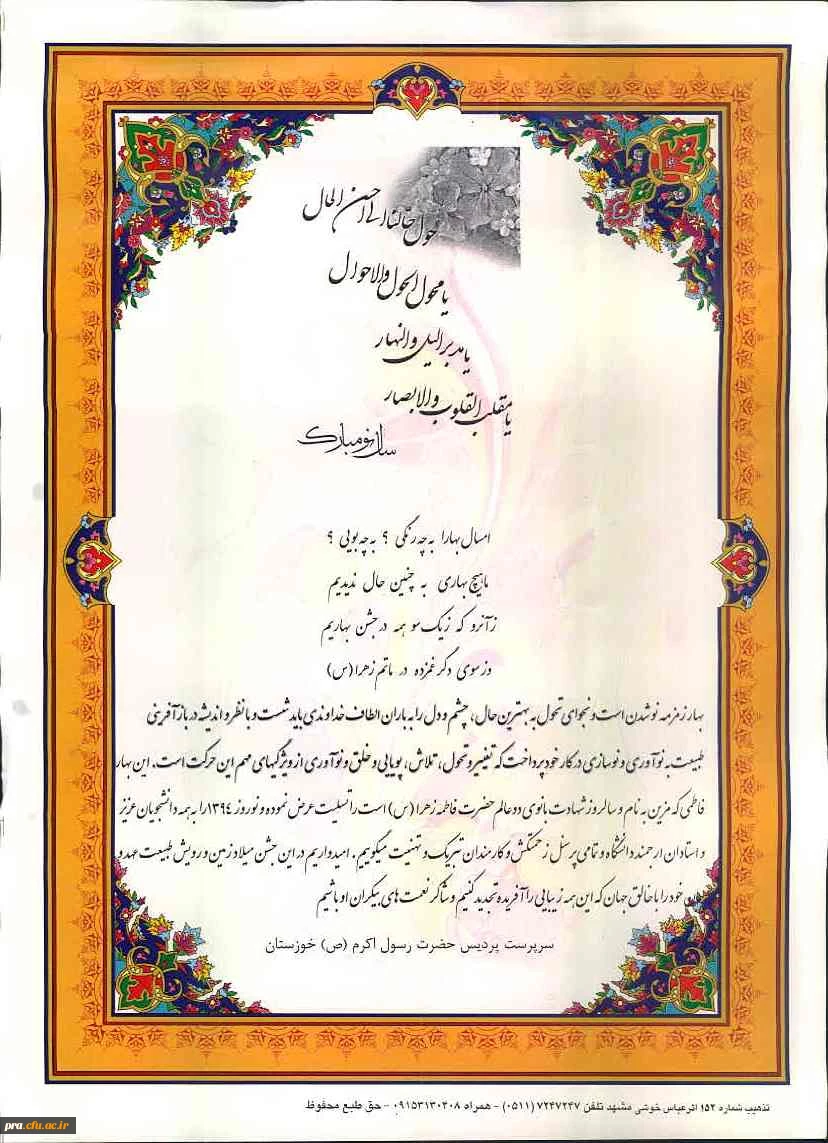 حول حالنا الی احسن الحال
یا محول الحول والاحوال
یا مدبر الیل و النهار
یا مقلب القلوب والابصار
سال نو مبارک
امسال بهارا به چه رنگی ؟ به چه بویی ؟
ما هیچ بهاری به چنین حال ندیدیم
زآنرو که زیک سو همه در جشن بهاریم
وز سوی دگر غمزده در ماتم زهرا (س)
بهار زمزمه نو شدن است و نجوای تحول به بهترین حال، چشم و دل را به باران الطاف خداوندی باید شست و با نظر و اندیشه در باز آفرینی
طبیعت به نوآوری و نوسازی در کار خود پرداخت که تغییر و تحول، تلاش، پویایی و خلق و نوآوری از ویژگیهای مهم این حرکت است. این بهار
فاطمی که مزین به نام و سالروز شهادت بانوی دو عالم حضرت فاطمه زهرا (س) است را تسلیت عرض نموده و نوروز ۱۳۹۴ را به همه دانشجویان عزیز
و استادان ارجمند دانشگاه و تمامی پرسنل زحمتکش و کارمندان تبریک و تهنیت میگوییم. امیدواریم در این جشن میلاد زمین و رویش طبیعت عهد و
خود را با خالق جهان که این همه زیبایی را آفریده تجدید کنیم و شاکر نعمت های بیکران او باشیم
سرپرست پردیس حضرت رسول اکرم (ص) خوزستان
تذهیب شماره ۱۵۲ اثر عباس خوشی مشهد تلفن ۷۲۴۷۲۴۷ (۰۵۱۱) - همراه ۰۹۱۵۳۱۳۰۲۰۸ - حق طبع محفوظ
pra.cfu.ac.ir